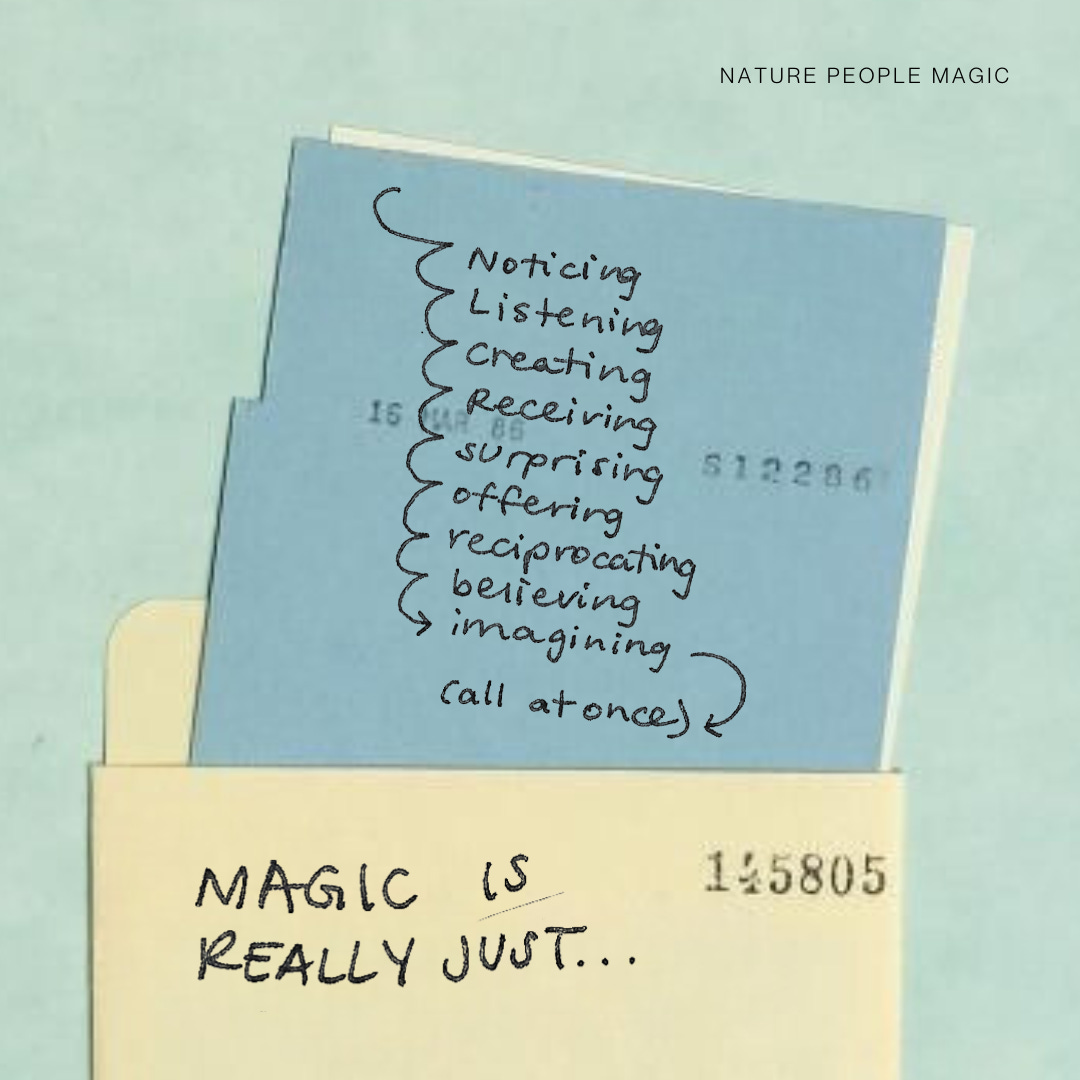 NATURE PEOPLE MAGIC
Noticing
Listening
creating
Receiving
16 MAR 86
surprising
S12286
offering
reciprocating
believing
imagining
(all at once)
MAGIC is
REALLY JUST...
145805